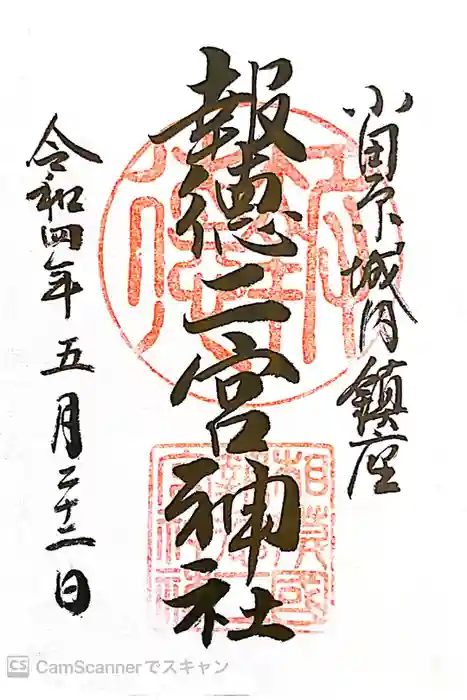 小田原城内鎮座
報徳二宮神社
令和四年五月二十二日
相模國
CS CamScannerでスキャン